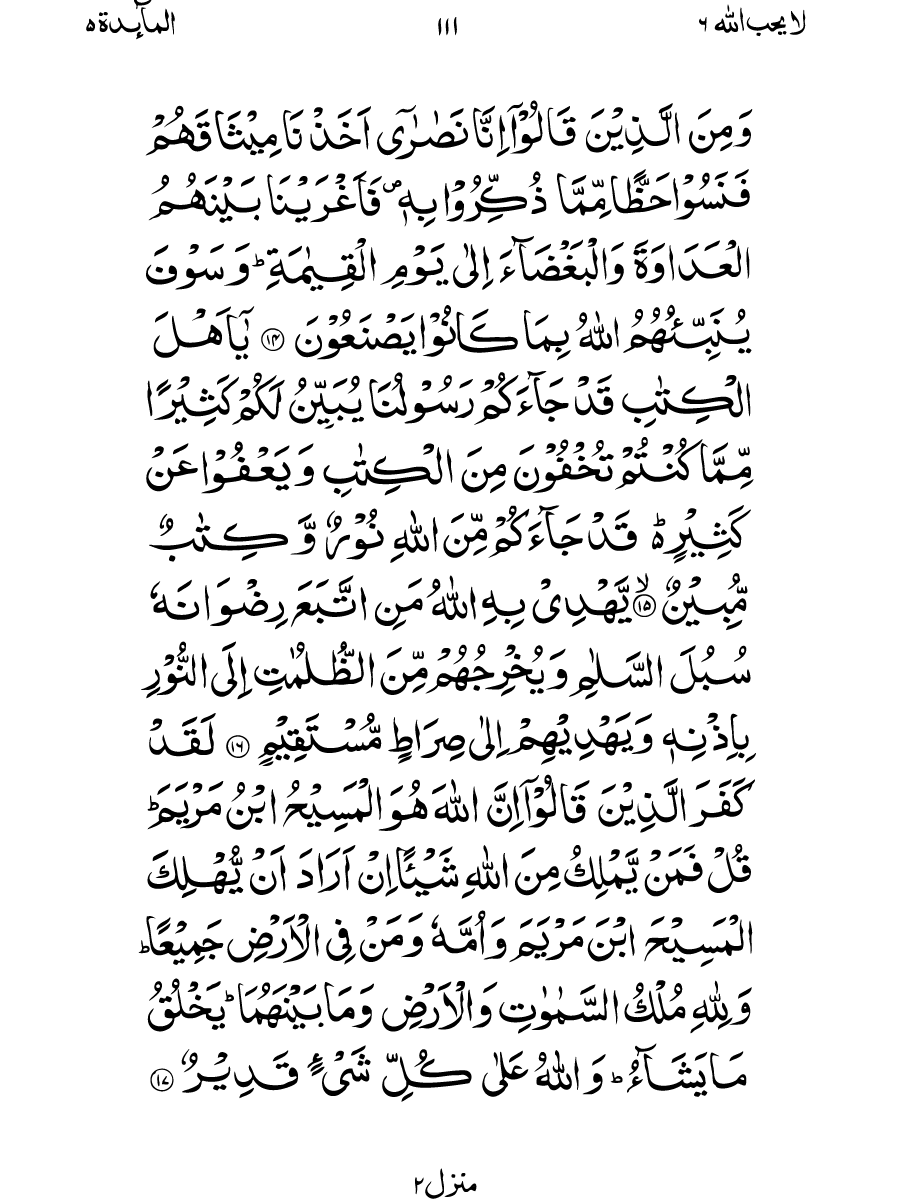 لا یحب اللہ ۶ ۱۱۱ المآىِٕدة ۵
وَ مِنَ الَّذِیْنَ قَالُوْۤا اِنَّا نَصٰرٰۤى اَخَذْنَا مِیْثَاقَهُمْ
فَنَسُوْا حَظًّا مِّمَّا ذُكِّرُوْا بِهٖ۪ فَاَغْرَیْنَا بَیْنَهُمُ
الْعَدَاوَةَ وَ الْبَغْضَآءَ اِلٰى یَوْمِ الْقِیٰمَةِؕ وَ سَوْفَ
یُنَبِّئُهُمُ اللّٰهُ بِمَا كَانُوْا یَصْنَعُوْنَ ۝۱۴ یٰۤاَهْلَ
الْكِتٰبِ قَدْ جَآءَكُمْ رَسُوْلُنَا یُبَیِّنُ لَكُمْ كَثِیْرًا
مِّمَّا كُنْتُمْ تُخْفُوْنَ مِنَ الْكِتٰبِ وَ یَعْفُوْا عَنْ
كَثِیْرٍ۬ؕ قَدْ جَآءَكُمْ مِّنَ اللّٰهِ نُوْرٌ وَّ كِتٰبٌ
مُّبِیْنٌۙ ۝۱۵ یَّهْدِیْ بِهِ اللّٰهُ مَنِ اتَّبَعَ رِضْوَانَهٗ
سُبُلَ السَّلٰمِ وَ یُخْرِجُهُمْ مِّنَ الظُّلُمٰتِ اِلَى النُّوْرِ
بِاِذْنِهٖ وَ یَهْدِیْهِمْ اِلٰى صِرَاطٍ مُّسْتَقِیْمٍ ۝۱۶ لَقَدْ
كَفَرَ الَّذِیْنَ قَالُوْۤا اِنَّ اللّٰهَ هُوَ الْمَسِیْحُ ابْنُ مَرْیَمَؕ
قُلْ فَمَنْ یَّمْلِكُ مِنَ اللّٰهِ شَیْـًٔا اِنْ اَرَادَ اَنْ یُّهْلِكَ
الْمَسِیْحَ ابْنَ مَرْیَمَ وَ اُمَّهٗ وَ مَنْ فِی الْاَرْضِ جَمِیْعًاؕ
وَ لِلّٰهِ مُلْكُ السَّمٰوٰتِ وَ الْاَرْضِ وَ مَا بَیْنَهُمَاؕ یَخْلُقُ
مَا یَشَآءُؕ وَ اللّٰهُ عَلٰى كُلِّ شَیْءٍ قَدِیْرٌ ۝۱۷
منزل ۲